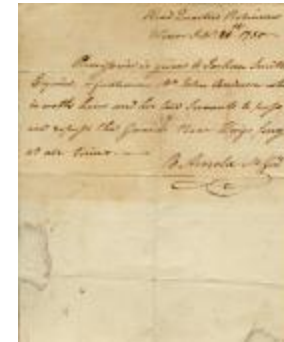 Head Quarters Robinsons
House Sepr 20th 1780
Permission is given to Joshua Smith
Esquire, a gentleman, Mr John Anderson who
is with him and his two Servants to pass
and repass the Guards near Kings ferry
at all times
B. Arnold M Genl